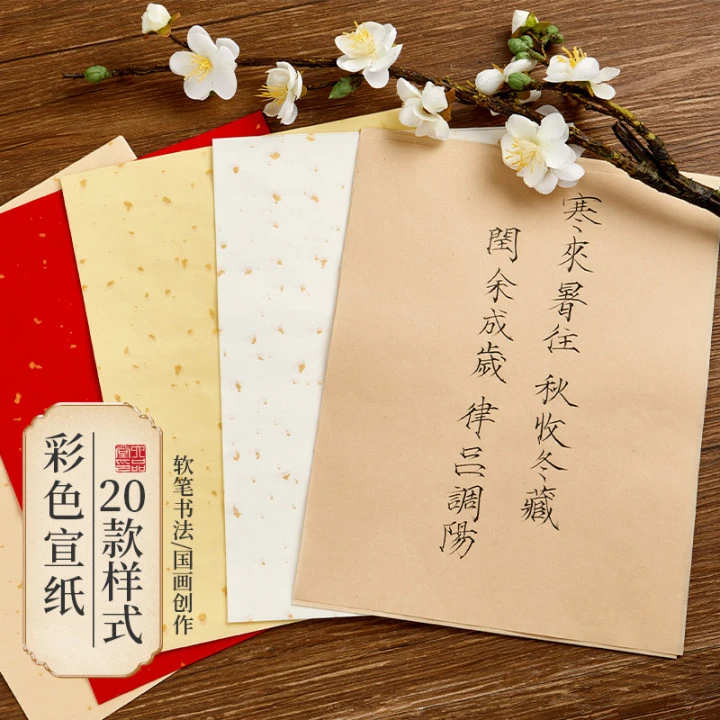 寒來暑往 秋收冬藏
閏余成歲 律呂調陽
软笔书法/国画创作
20款样式
彩色宣纸